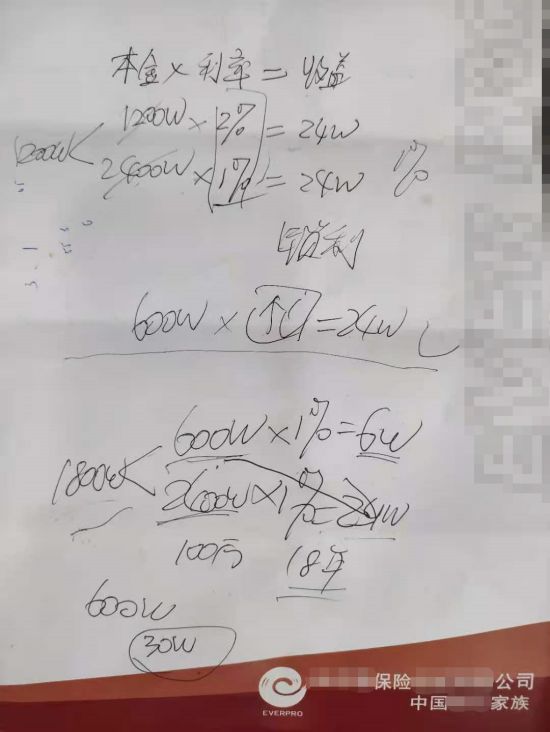 本金×利率=收益
1200W×2%=24W
1200W<
2400W×1%=24W
1%
锁利
600W×=24W
600W×1%=6W
1800W<
2400W×1%=24W
100万 18年
600W
30W
EVERPRO
保险 公司
中国 家族